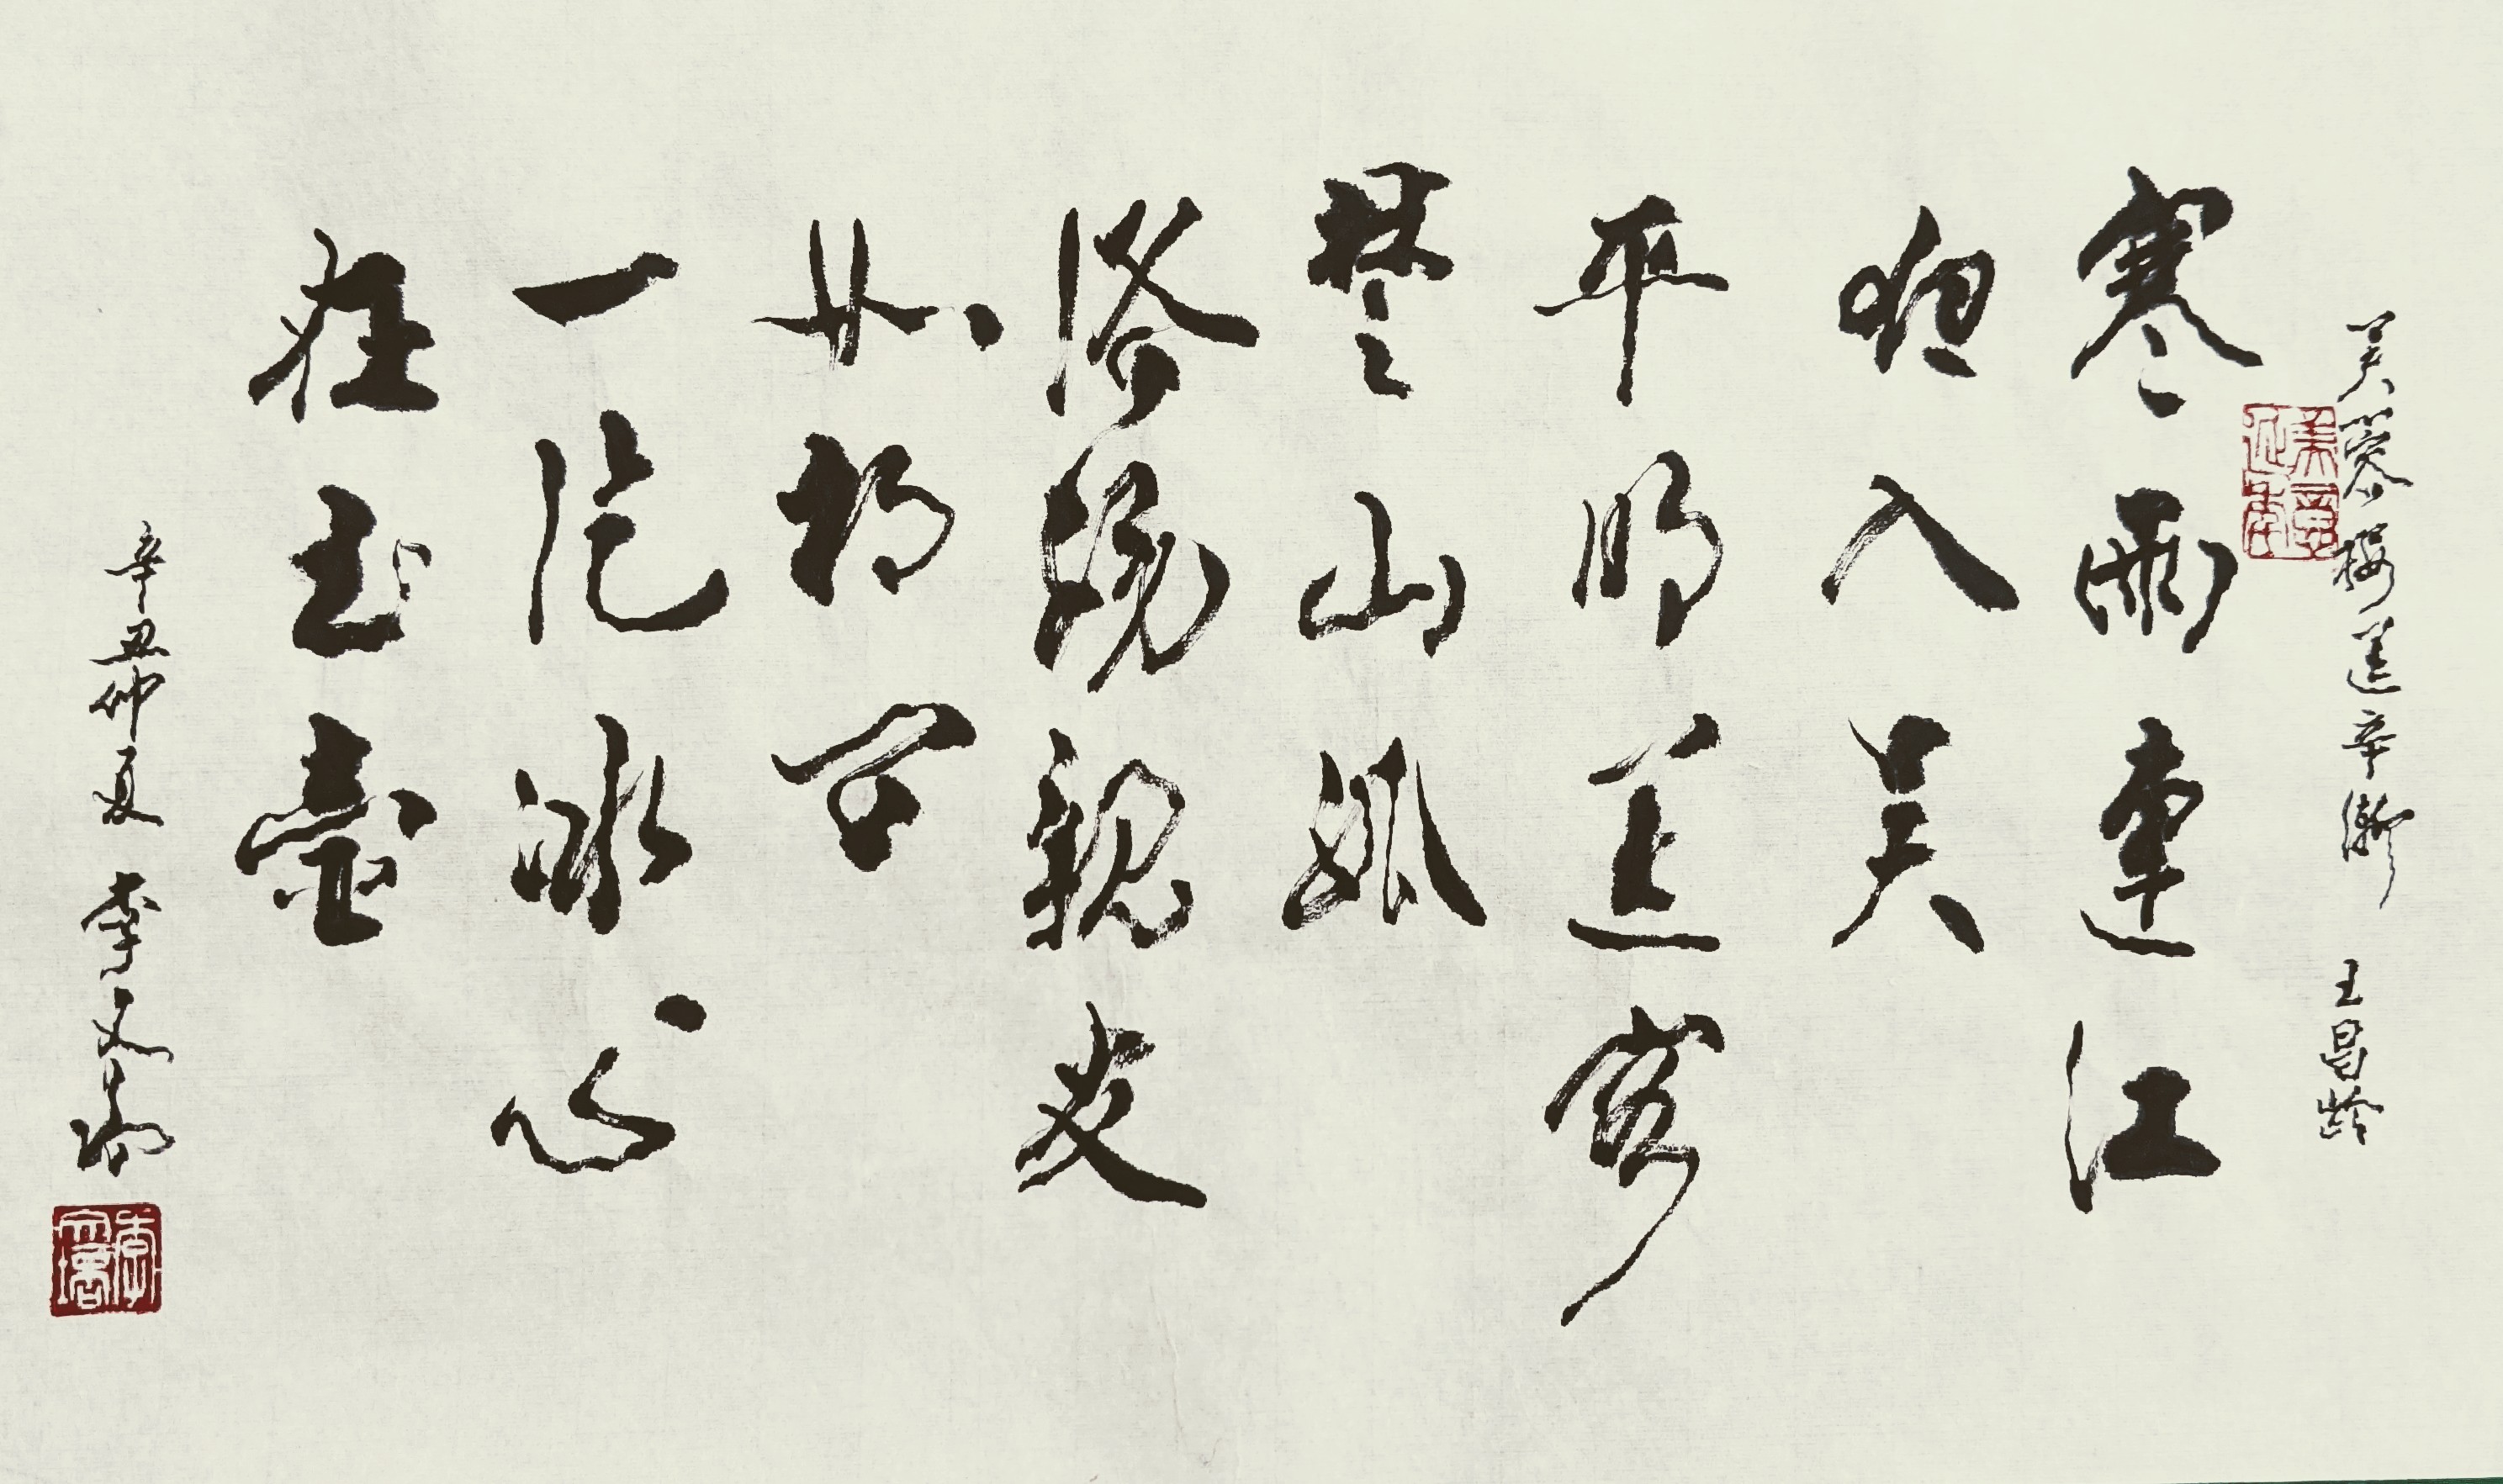 芙蓉楼送辛漸 王昌龄
寒雨連江
夜入吴
平明送客
楚山孤
洛陽親友
如相问
一片冰心
在玉壺
辛丑仲夏 李文